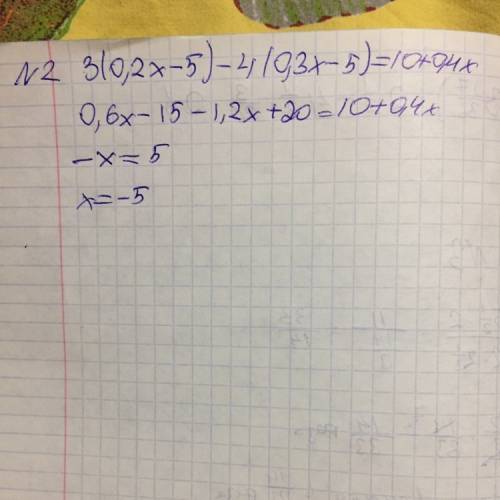 N2 3(0,2x-5)-4(0,3x-5)=10+0,4x
0,6x-15-1,2x+20=10+0,4x
-x=5
x=-5